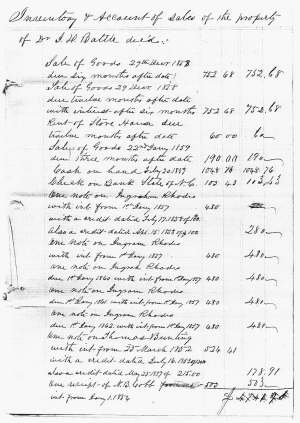 Inventory & Account of sales of the property
of Dr J. W. Battle decd.
Sale of Goods 29th Decr 1858
due six months after date 752 68 752,68
Sale of Goods 29 Decr 1858
due twelve months after date
with interest after six months 752 68 752,68
Rent of Store House due
twelve months after date 60 00 60
Sales of Goods 22nd Jany 1859
due three months after date 190 00 190
Cash on hand July 20 1859 1048 76 1048.76
Check on Bank State of N.C. 103 43 103,43
One note on Ingraham Rhodes
with int from 1st Jany 1857 480
with a credit dated July 17 1858 of
Also a credit dated Nov. 15 1858 of $100 280
One note on Ingram Rhodes
with int from 1st Jany 1857 480 480
One note on Ingram Rhodes
due 1st Jany 1860 with int from 1st Jany 1857 480 480
One note on Ingram Rhodes
due 1st Jany 1861 with int from 1st Jany 1857 480 480
One note on Ingram Rhodes
due 1st Jany 1862 with int from 1st Jany 1857 480 480
One note on Thomas Bunting
with int from 25 March 1852 524 61
with a credit dated July 16 1852
Also a credit dated May 25 1857 of 215.00 178.91
One receipt of N. B. Cobb 503 503
int from Jany 1 1856